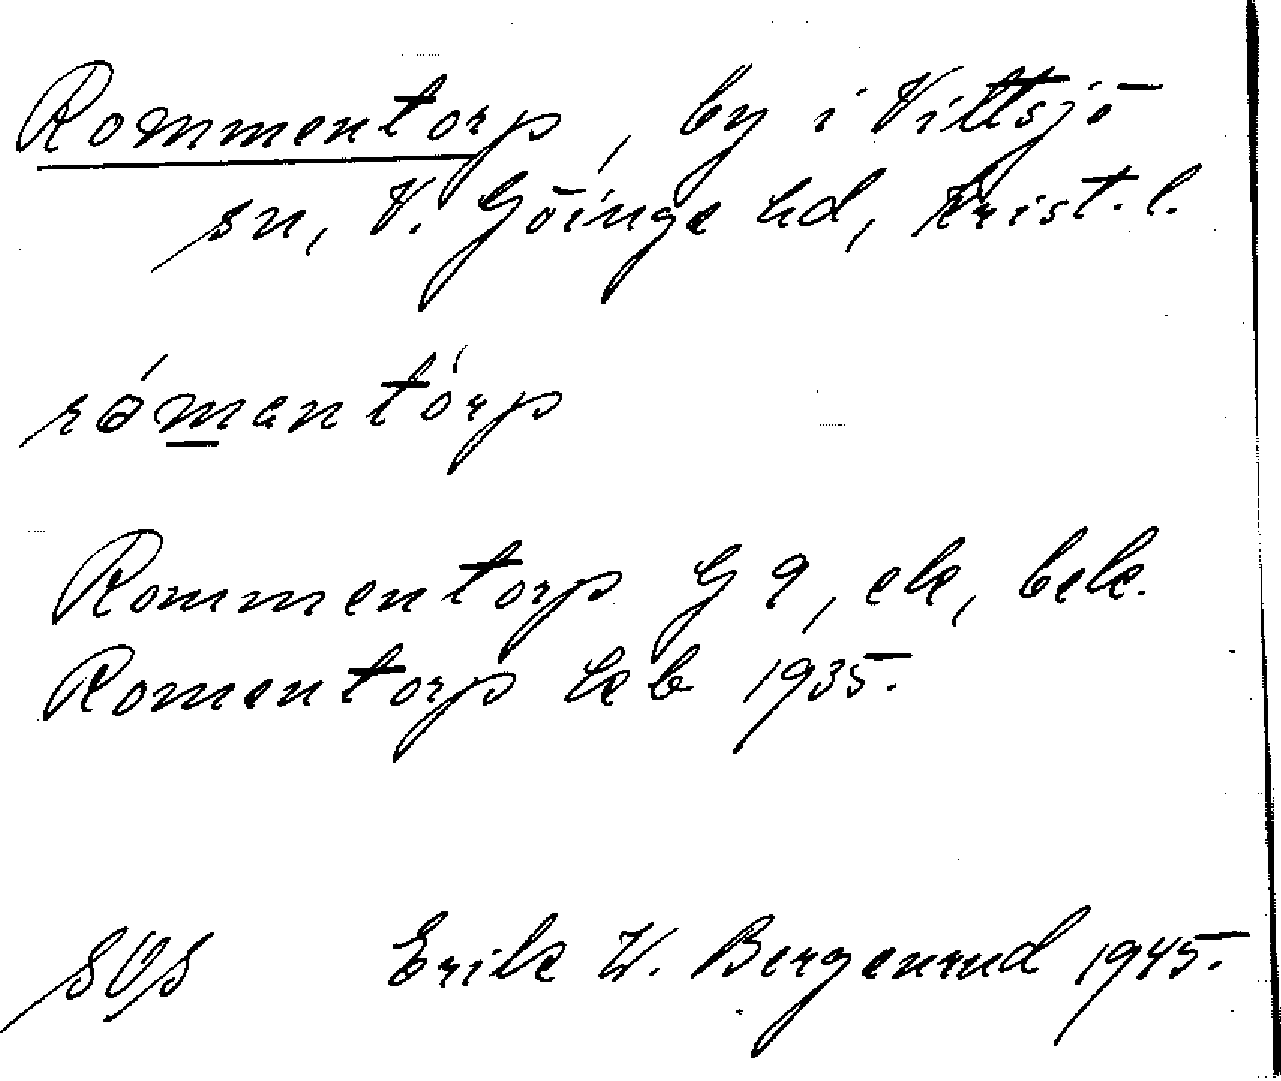 Rommentorp, by i Vittsjö
sn, V. Göinge hd, Krist. l.
rómantórp
Rommentorp G 9, ek, bek.
Romentorp hkb 1935.
SOS Erik W. Bergenrud 1945.